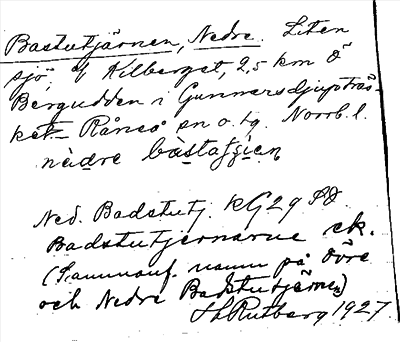 Bastutjärnen, Nedre. Liten
sjö, V Kilberget, 2,5 km Ö
Bergudden i Gunnarsdjupträs-
ket Råneå sn o. tg. Norrb. l.
Ned. Badstutj. kG29 SO
Badstutjernarne ek.
(Sammanf. namn på Övre
och Nedre Badstutjärnen)
Rutberg 1927